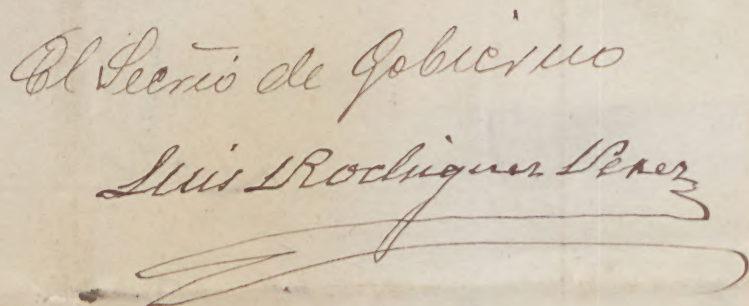 El Secrio de Gobierno
Luis Rodriguez Perez